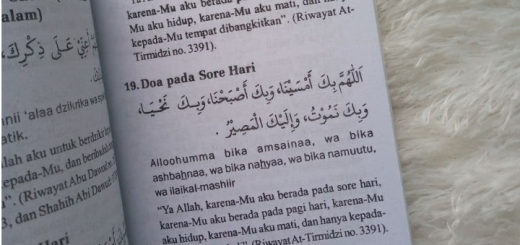 alam)
karena-Mu aku berada
Mu aku hidup, karena-Mu aku mati, dan
kepada-Mu tempat dibangkitkan". (Riwayat At-
Tirmidzi no. 3391).
19. Doa pada Sore Hari
اَللّٰهُمَّ بِكَ أَمْسَيْنَا، وَبِكَ أَصْبَحْنَا، وَبِكَ نَحْيَا،
وَبِكَ نَمُوْتُ، وَإِلَيْكَ الْمَصِيْرُ.
Alloohumma bika amsainaa, wa bika
ashbahnaa, wa bika nahyaa, wa bika namuutu,
wa ilaikal-mashiir
"Ya Allah, karena-Mu aku berada pada sore hari,
karena-Mu aku berada pada pagi hari, karena-Mu
aku hidup, karena-Mu aku mati, dan hanya kepada-
(Riwayat At-Tirmidzi no. 3391).
عَلَى ذِكْرِكَ
nii 'alaa dzikrika wa
atik.
lah aku untuk berdzikir
epada-Mu, dan
(Riwayat Abu Dawud
3, dan Shahih Abi Dawud
Hari